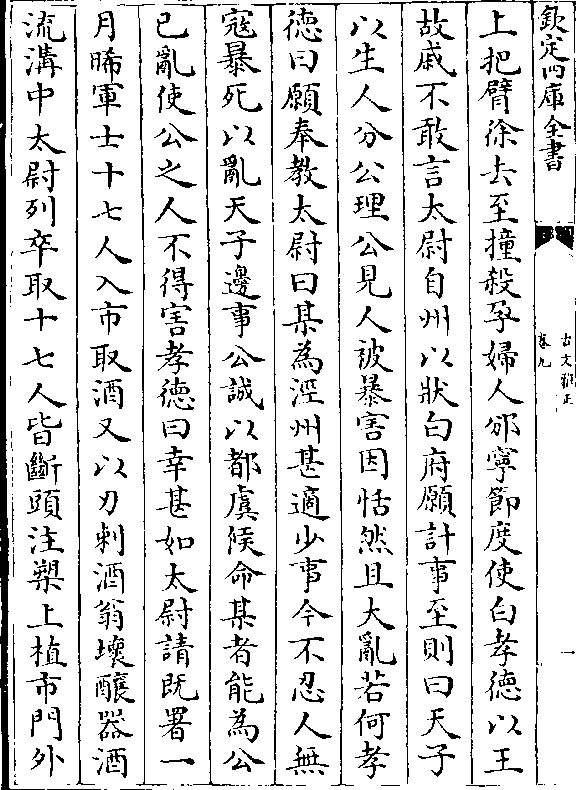 欽定四庫全書
古文雅正
卷九
一
上把臂徐去至撞殺孕婦人邠寧節度使白孝德以王
故戚不敢言太尉自州以狀白府願計事至則曰天子
以生人分公理公見人被暴害因恬然且大亂若何孝
德曰願奉教太尉曰某為涇州甚適少事今不忍人無
寇暴死以亂天子邊事公誠以都虞候命某者能為公
已亂使公之人不得害孝德曰幸甚如太尉請既署一
月晞軍士十七人入市取酒又以刃刺酒翁壞釀器酒
流溝中太尉列卒取十七人皆斷頭注槊上植市門外